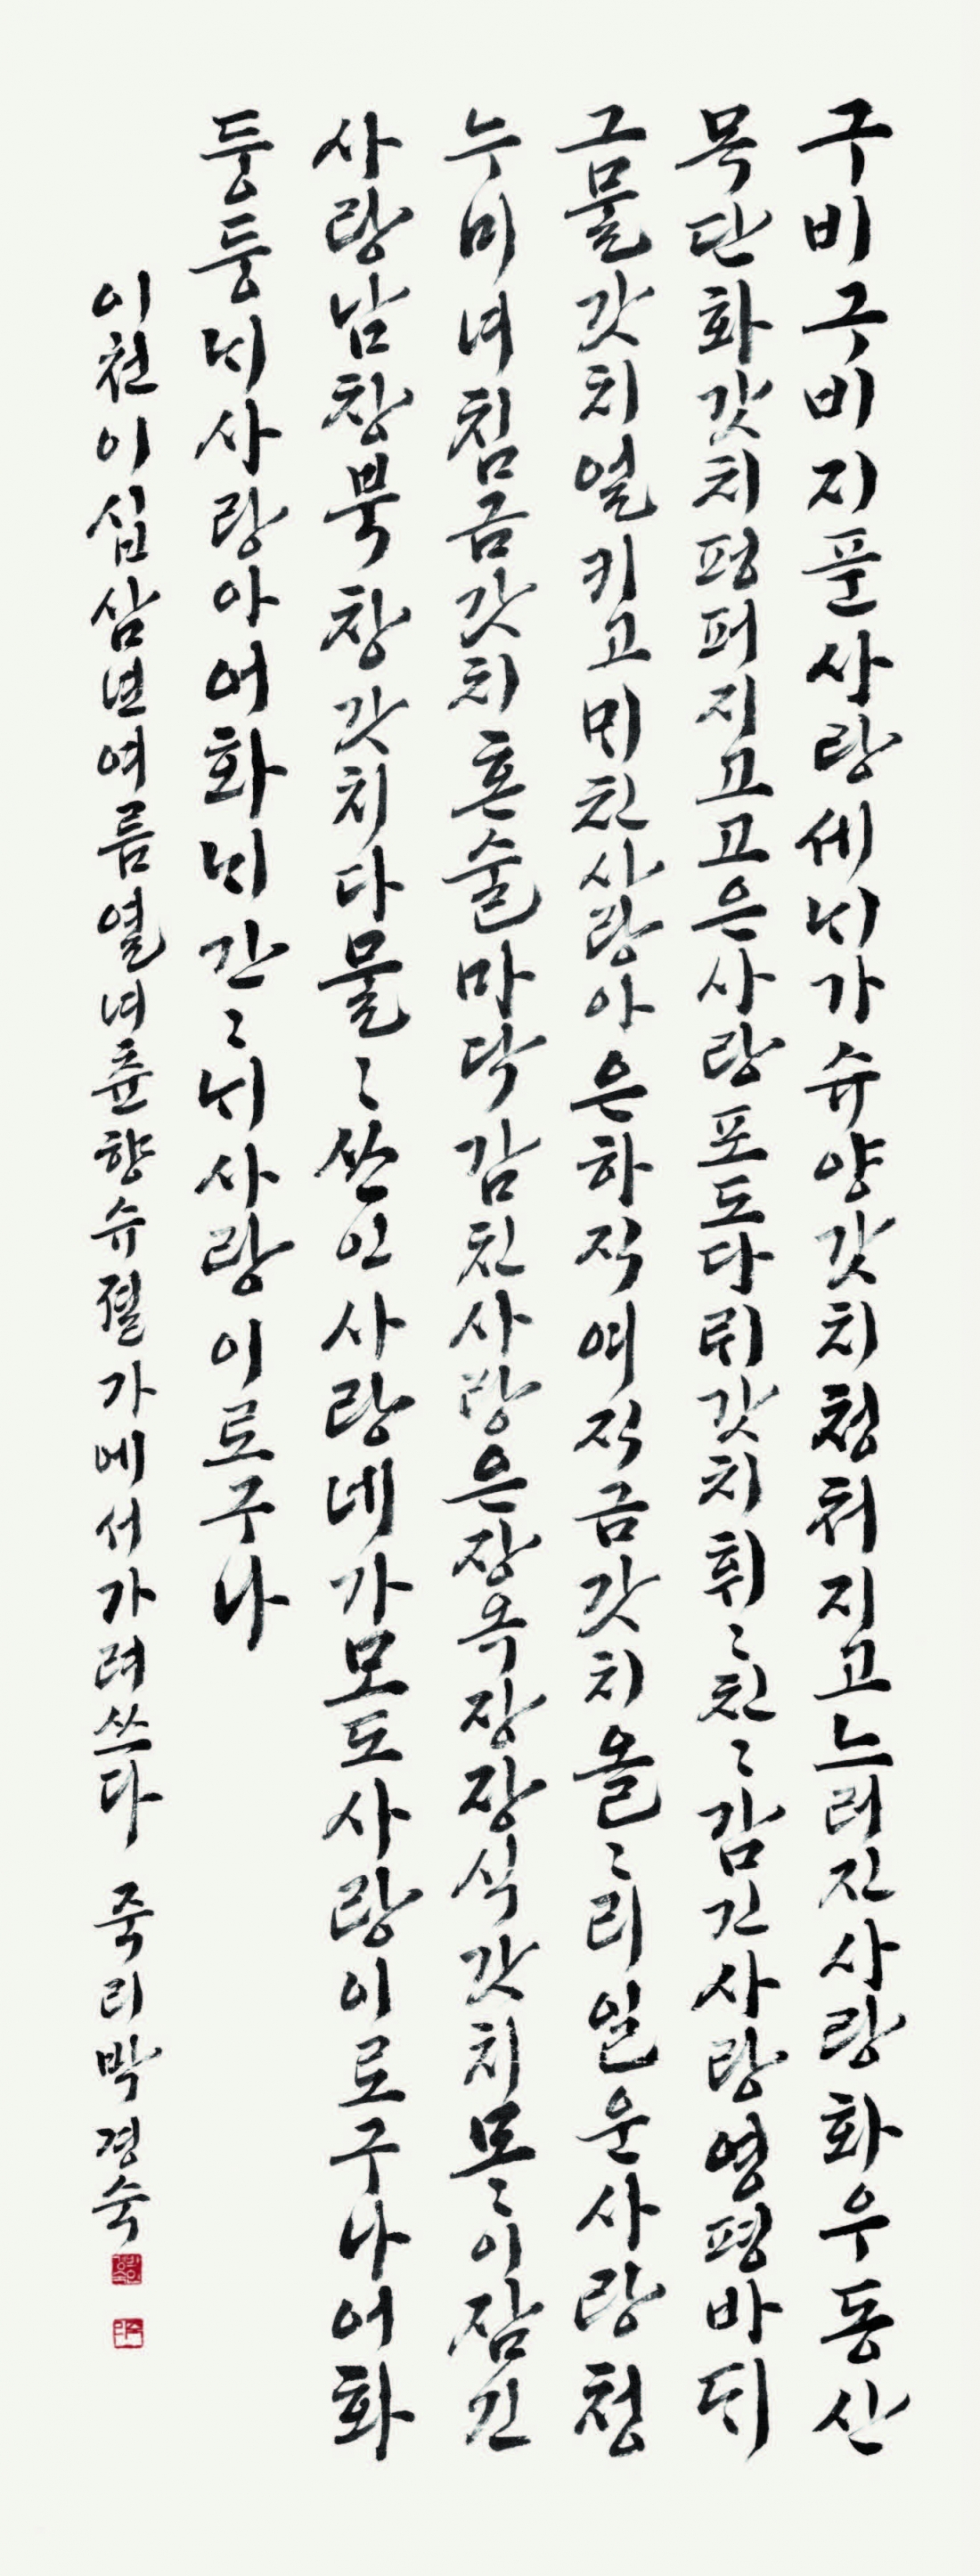 구비구비지픈사랑세ᄂᆡ가슈양갓치쳥쳐지고느러진사랑화우동산
목단화갓치펑퍼지고고은사랑포도다ᄅᆡ갓치휘〻친〻감긴사랑영평바ᄃᆡ
그물갓치얼키고ᄆᆡ친사랑아은하직여직금갓치올〻리일운사랑쳥
누비녀침금갓치혼술마닥감친사랑은장옥장장식갓치모〻이잠긴
사랑남창북창갓치다물〻쓴인사랑네가모도사랑이로구나어화
둥둥ᄂᆡ사랑아어화ᄂᆡ간〻ᄂᆡ사랑이로구나
이천이십삼년여름열녀츈향슈졀가에서가려쓰다 죽리박경숙